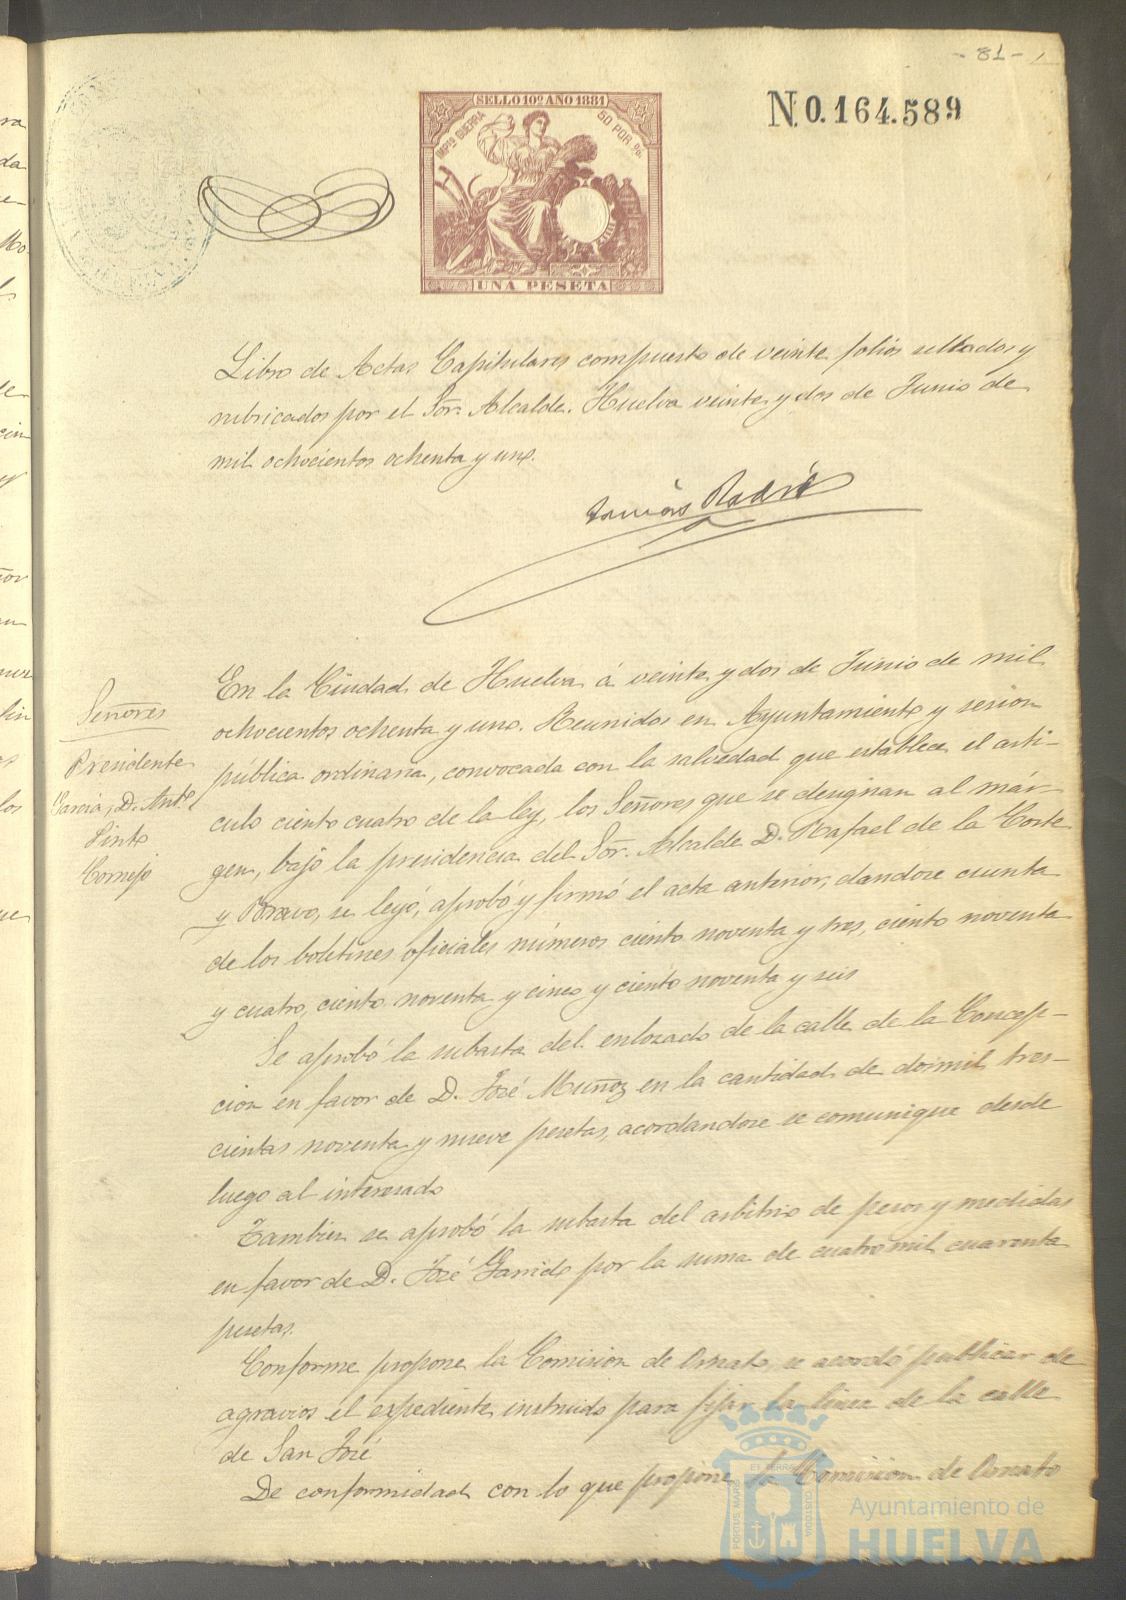 - 81 -
SELLO 10º AÑO 1881
IMPTO GUERRA
50 POR %.
UNA PESETA
N. 0.164.589
Libro de Actas Capitulares compuesto de veinte folios sellados y
rubricados por el Sor. Alcalde. Huelva veinte y dos de Junio de
mil ochocientos ochenta y uno.
Señores
Presidente
Garcia, D. Anto.
Pinto
Cornejo
En la Ciudad de Huelva á veinte y dos de Junio de mil
ochocientos ochenta y uno. Reunidos en Ayuntamiento y sesion
publica ordinaria, convocada con la salvedad que establece el arti-
culo ciento cuatro de la ley, los Señores que se designan al már-
gen, bajo la presidencia del Sor. Alcalde D. Rafael de la Corte
y Bravo, se leyó, aprobó y firmó el acta anterior, dandose cuenta
de los boletines oficiales números ciento noventa y tres, ciento noventa
y cuatro, ciento noventa y cinco y ciento noventa y seis
Se aprobó la subasta del enlozado de la calle de la Concep-
cion en favor de D. José Muñoz en la cantidad de dosmil tres-
cientas noventa y nueve pesetas, acordandose se comunique desde
luego al interesado
Tambien se aprobó la subasta del arbitrio de pesos y medidas
en favor de D. José Garrido por la suma de cuatromil cuarenta
pesetas.
Conforme propone la Comision de Ornato, se acordó publicar de
agravios el espediente instruido para fijar la linea de la calle
de San José
De conformidad con lo que propone la Comision de Ornato
PORTUS MARIS
ET TERRAE
CUSTODIA
Ayuntamiento de
HUELVA